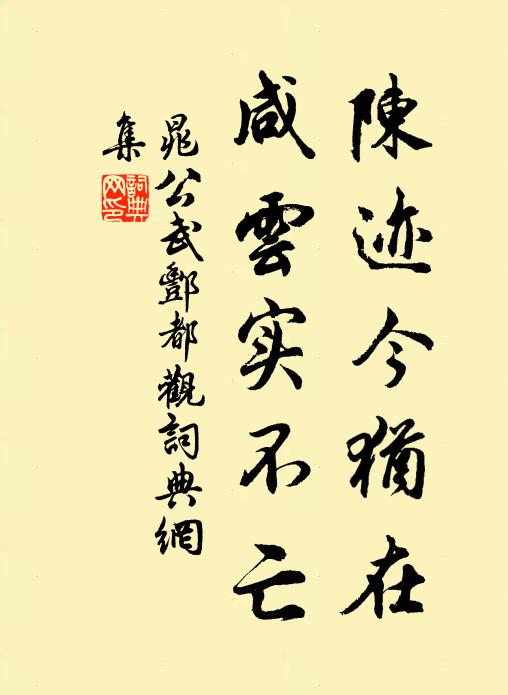 陳迹今猶在
咸雲实不亡
晁公武酆都觀詞典網
集
詞典
网印